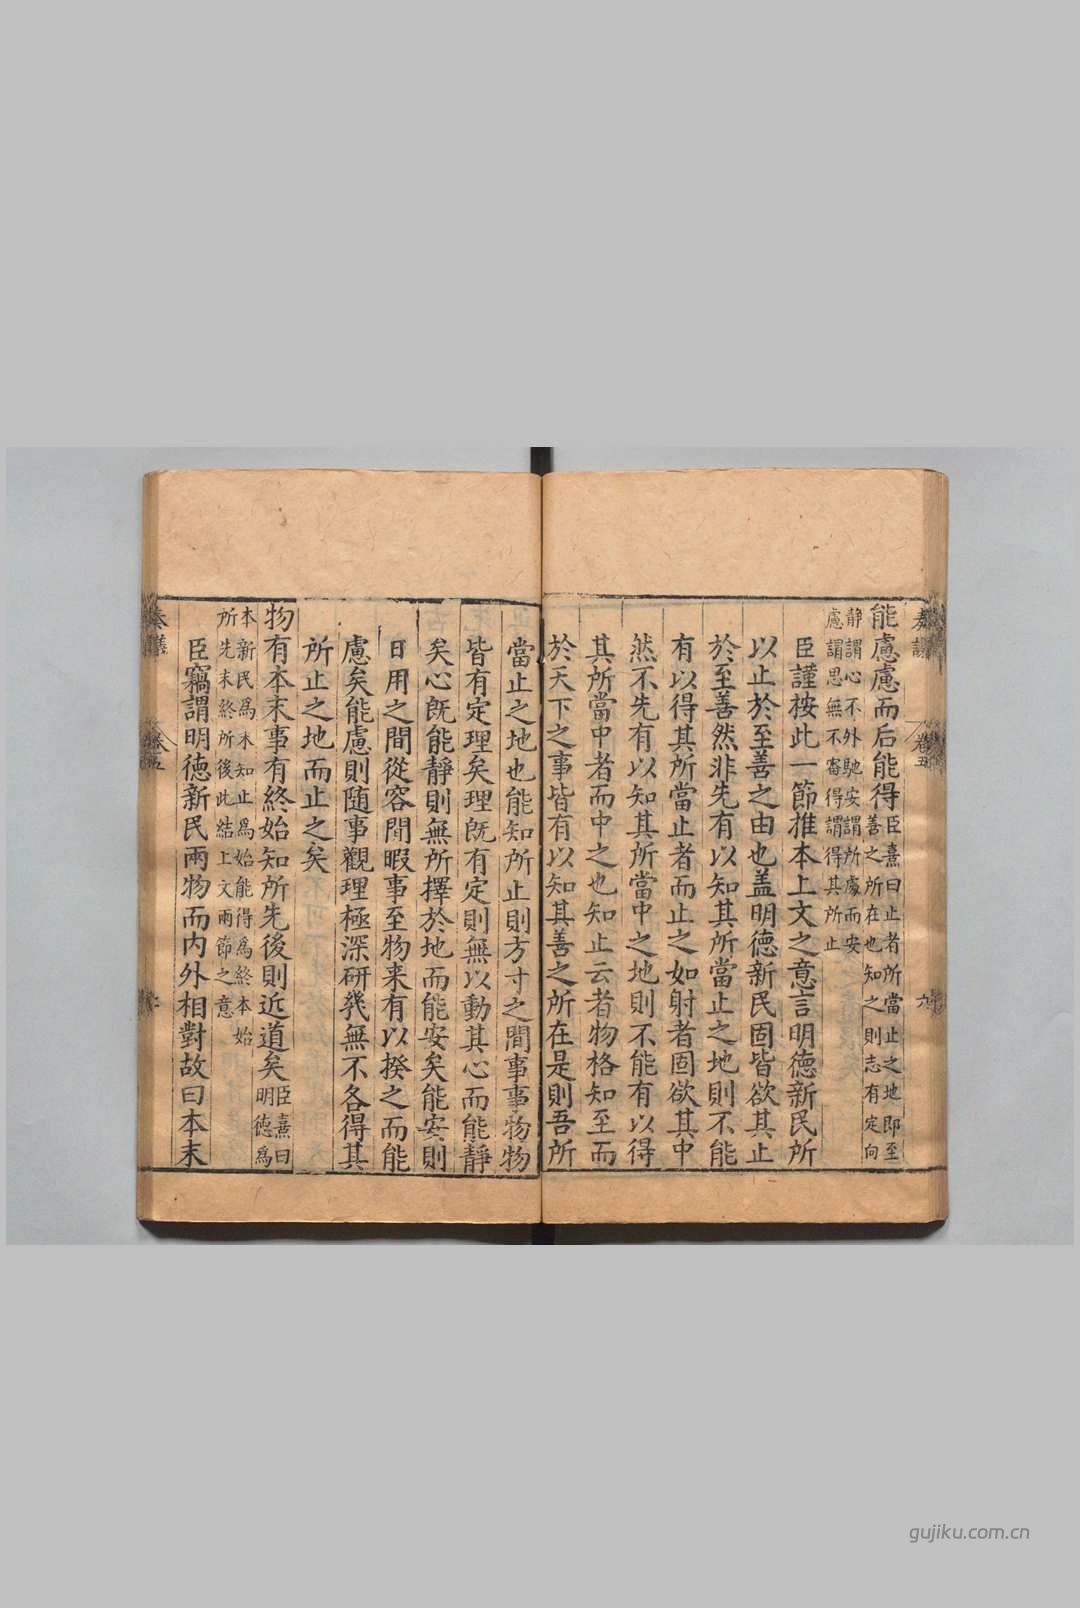 奏議
卷五
九
能慮慮而后能得臣熹曰止者所當止之地即至
善之所在也知之則志有定向
靜謂心不外馳安謂所處而安
慮謂思無不審得謂得其所止
臣謹按此一節推本上文之意言明德新民所
以止於至善之由也盖明德新民固皆欲其止
於至善然非先有以知其所當止之地則不能
有以得其所當止者而止之如射者固欲其中
然不先有以知其所當中之地則不能有以得
其所當中者而中之也知止云者物格知至而
於天下之事皆有以知其善之所在是則吾所
當止之地也能知所止則方寸之間事事物物
皆有定理矣理既有定則無以動其心而能靜
矣心既能靜則無所擇於地而能安矣能安則
日用之間從容間暇事至物来有以揆之而能
慮矣能慮則隨事觀理極深研幾無不各得其
所止之地而止之矣
物有本末事有終始知所先後則近道矣臣熹曰
明德爲
本新民爲末知止爲始能得爲終本始
所先末終所後此結上文兩節之意
臣竊謂明德新民兩物而内外相對故曰本末
奏議
卷五
gujiku.com.cn